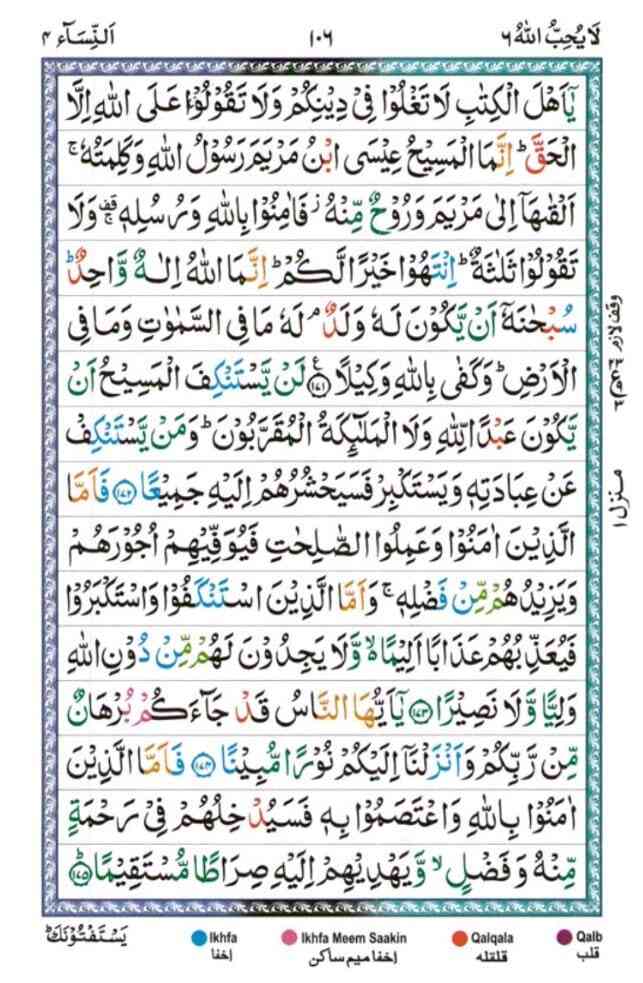 لَا يُحِبُّ اللهُ ٦ ١٠٦ اَلنِّسَآء ٤
يٰۤاَهْلَ الْكِتٰبِ لَا تَغْلُوْا فِىْ دِيْنِكُمْ وَلَا تَقُوْلُوْا عَلَى اللهِ اِلَّا
الْحَقَّ ؕ اِنَّمَا الْمَسِيْحُ عِيْسَى ابْنُ مَرْيَمَ رَسُوْلُ اللهِ وَكَلِمَتُهٗ ۚ
اَلْقٰىهَاۤ اِلٰى مَرْيَمَ وَرُوْحٌ مِّنْهُ ؗ فَاٰمِنُوْا بِاللهِ وَرُسُلِهٖ ۚ قف وَلَا
تَقُوْلُوْا ثَلٰثَةٌ ؕ اِنْتَهُوْا خَيْرًا لَّكُمْ ؕ اِنَّمَا اللهُ اِلٰهٌ وَّاحِدٌ ؕ
سُبْحٰنَهٗۤ اَنْ يَّكُوْنَ لَهٗ وَلَدٌ ۘ لَهٗ مَا فِى السَّمٰوٰتِ وَمَا فِى
الْاَرْضِ ؕ وَكَفٰى بِاللهِ وَكِيْلًا ﴿١٧١﴾ ع لَنْ يَّسْتَنْكِفَ الْمَسِيْحُ اَنْ
يَّكُوْنَ عَبْدًا لِّلّٰهِ وَلَا الْمَلٰٓئِكَةُ الْمُقَرَّبُوْنَ ؕ وَمَنْ يَّسْتَنْكِفْ
عَنْ عِبَادَتِهٖ وَيَسْتَكْبِرْ فَسَيَحْشُرُهُمْ اِلَيْهِ جَمِيْعًا ﴿١٧٢﴾ فَاَمَّا
الَّذِيْنَ اٰمَنُوْا وَعَمِلُوا الصّٰلِحٰتِ فَيُوَفِّيْهِمْ اُجُوْرَهُمْ
وَيَزِيْدُهُمْ مِّنْ فَضْلِهٖ ۚ وَاَمَّا الَّذِيْنَ اسْتَنْكَفُوْا وَاسْتَكْبَرُوْا
فَيُعَذِّبُهُمْ عَذَابًا اَلِيْمًا ۙ وَّلَا يَجِدُوْنَ لَهُمْ مِّنْ دُوْنِ اللهِ
وَلِيًّا وَّلَا نَصِيْرًا ﴿١٧٣﴾ يٰۤاَيُّهَا النَّاسُ قَدْ جَآءَكُمْ بُرْهَانٌ
مِّنْ رَّبِّكُمْ وَاَنْزَلْنَاۤ اِلَيْكُمْ نُوْرًا مُّبِيْنًا ﴿١٧٤﴾ فَاَمَّا الَّذِيْنَ
اٰمَنُوْا بِاللهِ وَاعْتَصَمُوْا بِهٖ فَسَيُدْخِلُهُمْ فِىْ رَحْمَةٍ
مِّنْهُ وَفَضْلٍ ۙ وَّيَهْدِيْهِمْ اِلَيْهِ صِرَاطًا مُّسْتَقِيْمًا ﴿١٧٥﴾ ؕ
وقف لازم
منزل ١
يَسْتَفْتُوْنَكَ ؕ
Ikhfa Ikhfa Meem Saakin Qalqala Qalb
إخفا إخفا ميم ساكن قلقله قلب